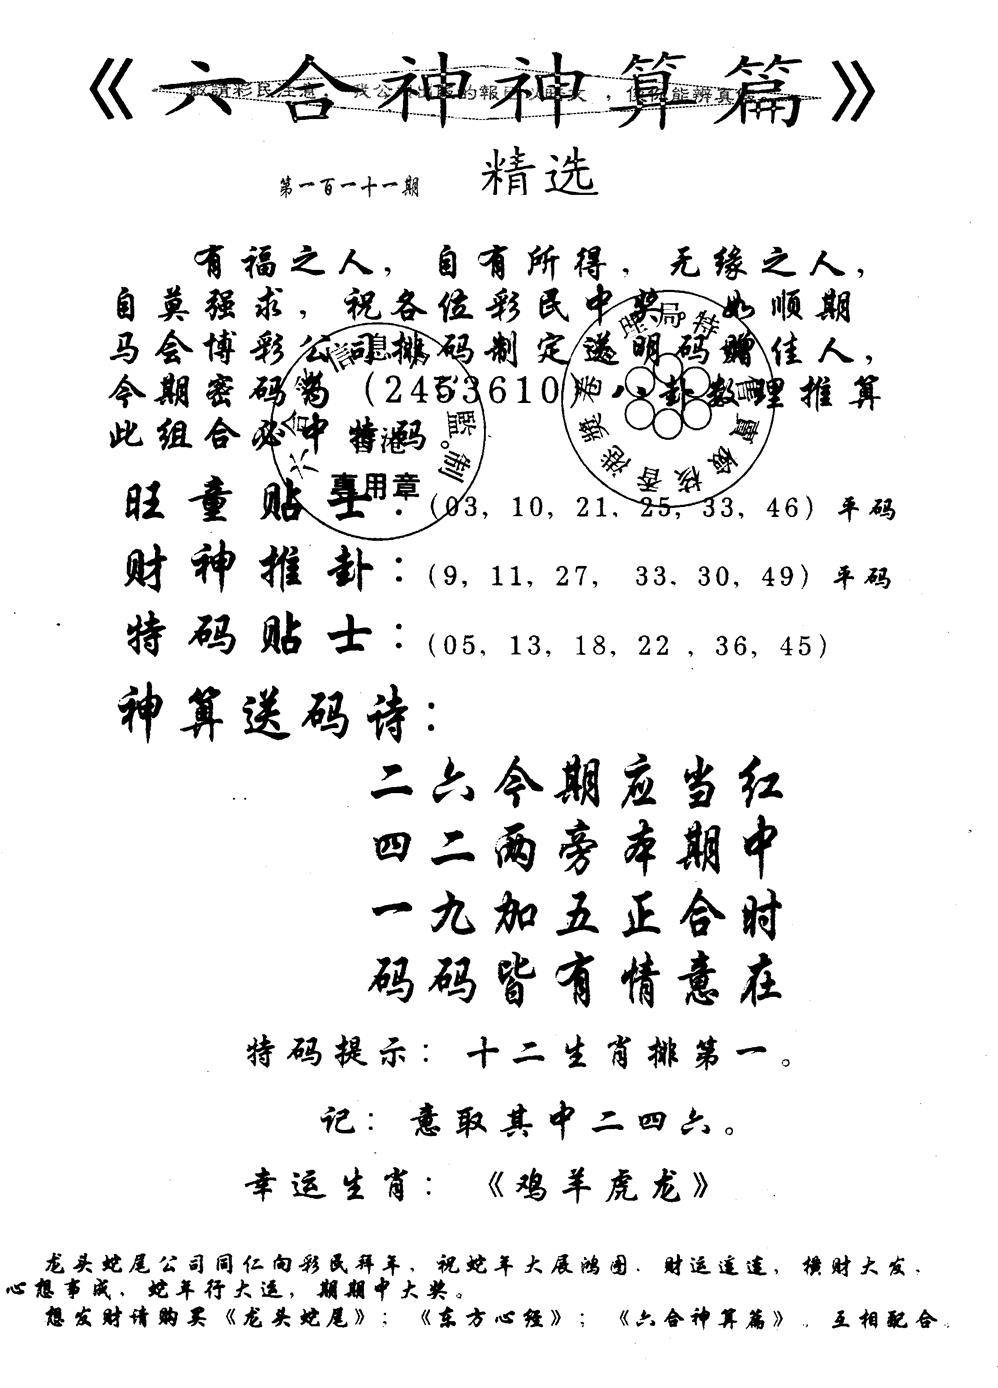 《六合神神算篇》
敬請彩民注意
第一百一十一期 精选
有福之人，自有所得，无缘之人，
自莫强求，祝各位彩民中奖。如顺期
马会博彩公司排码制定送明码赠佳人，
今期密码为（2453610）八卦数理推算
此组合必中特码
旺童贴士：（03，10，21，25，33，46）平码
财神推卦：（9，11，27， 33，30，49）平码
特码贴士：（05，13，18，22，36，45）
神算送码诗：
二六今期应当红
四二两旁本期中
一九加五正合时
码码皆有情意在
特码提示：十二生肖排第一。
记：意取其中二四六。
幸运生肖：《鸡羊虎龙》
龙头蛇尾公司同仁向彩民拜年，祝蛇年大展鸿图，财运连连，横财大发，
心想事成，蛇年行大运，期期中大奖。
想发财请购买《龙头蛇尾》；《东方心经》；《六合神算篇》，互相配合。
香港
專用章